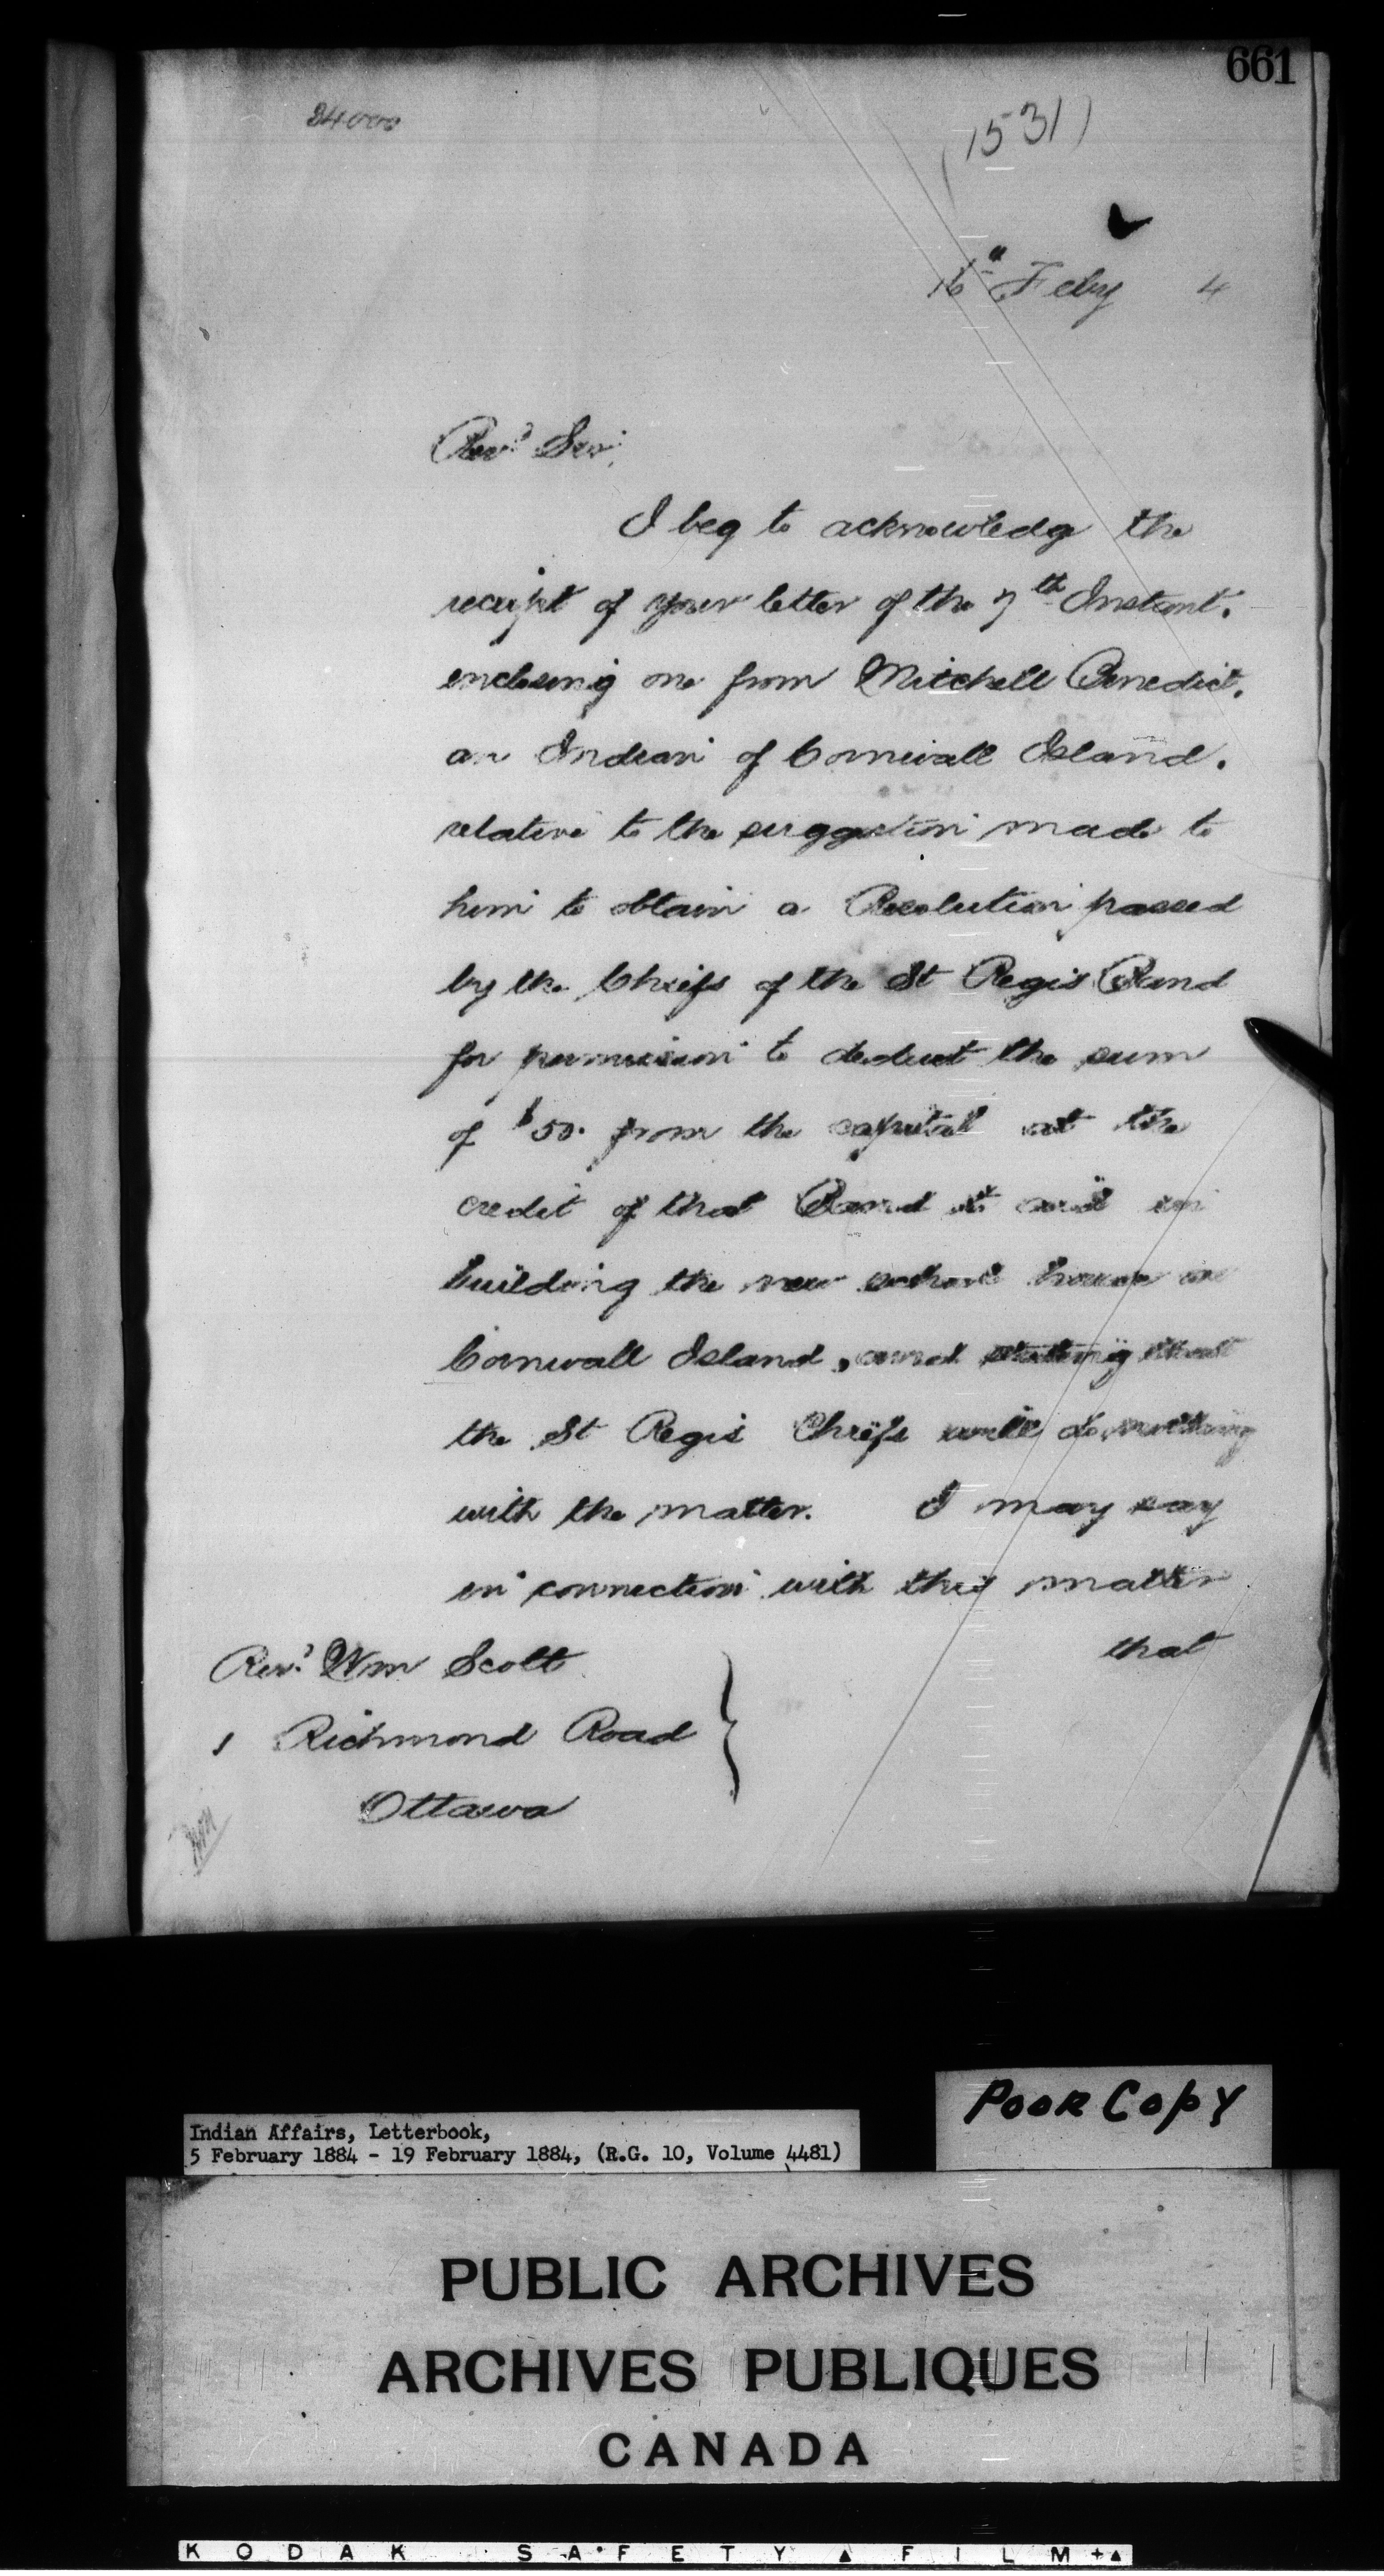 661
24000
(1531)
16th Feby 4
Revd Sir,
I beg to acknowledge the
receipt of your letter of the 7th Instant.
enclosing one from Mitchell Benedict.
an Indian of Cornwall Island.
relative to the suggestion made to
him to obtain a Resolution passed
by the Chiefs of the St Regis Band
for permission to deduct the sum
of $50. from the capital at the
credit of that Band to aid in
building the new school house on
Cornwall Island, and stating that
the St Regis Chiefs will do nothing
with the matter. I may say
in connection with this matter
that
Revd Wm Scott
1 Richmond Road
Ottawa
Poor Copy
Indian Affairs, Letterbook,
5 February 1884 - 19 February 1884, (R.G. 10, Volume 4481)
PUBLIC ARCHIVES
ARCHIVES PUBLIQUES
CANADA
KODAK SAFETY FILM